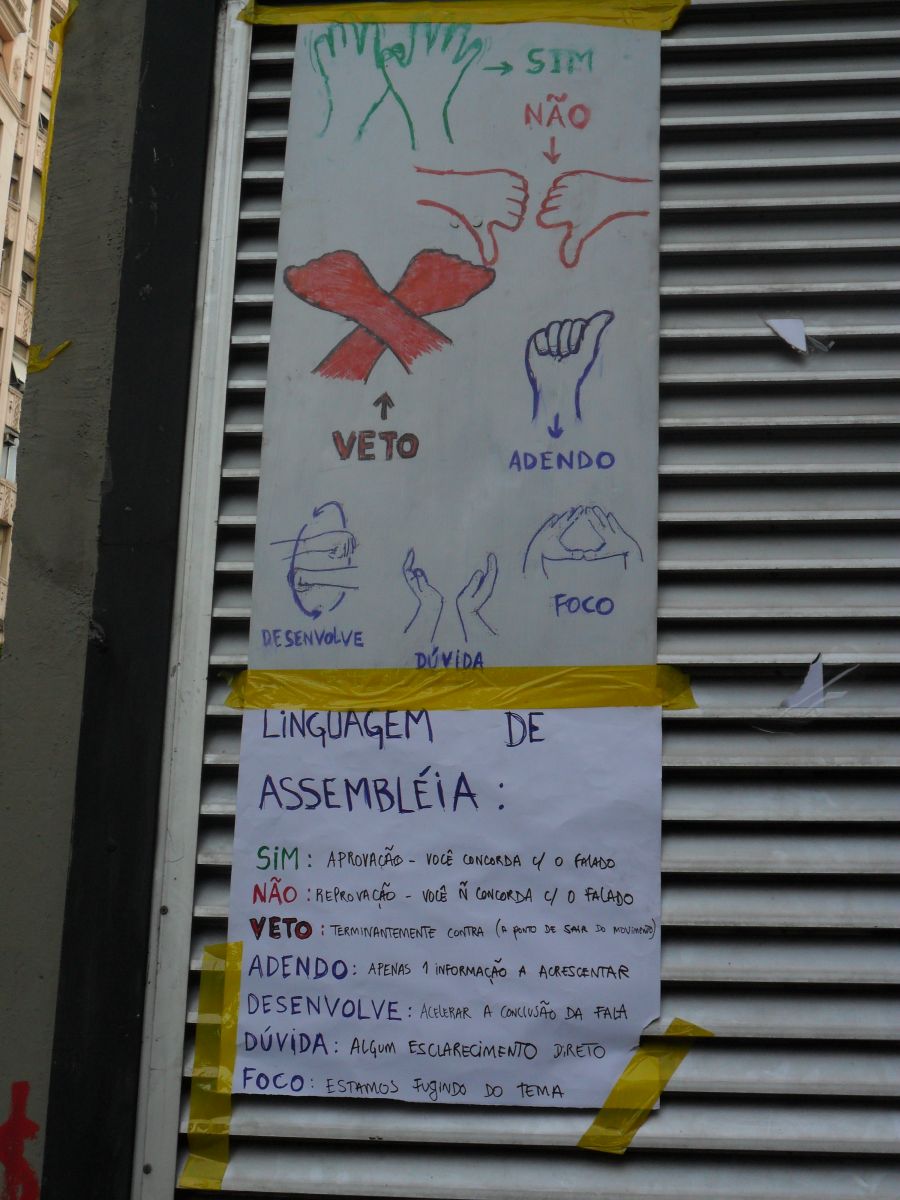 → SIM
NÃO
VETO
ADENDO
DESENVOLVE
DÚVIDA
FOCO
LINGUAGEM DE
ASSEMBLÉIA :
SIM : APROVAÇÃO - VOCÊ CONCORDA C/ O FALADO
NÃO : REPROVAÇÃO - VOCÊ Ñ CONCORDA C/ O FALADO
VETO : TERMINANTEMENTE CONTRA (A PONTO DE SAIR DO MOVIMENTO)
ADENDO : APENAS 1 INFORMAÇÃO A ACRESCENTAR
DESENVOLVE : ACELERAR A CONCLUSÃO DA FALA
DÚVIDA : ALGUM ESCLARECIMENTO DIRETO
FOCO : ESTAMOS FUGINDO DO TEMA